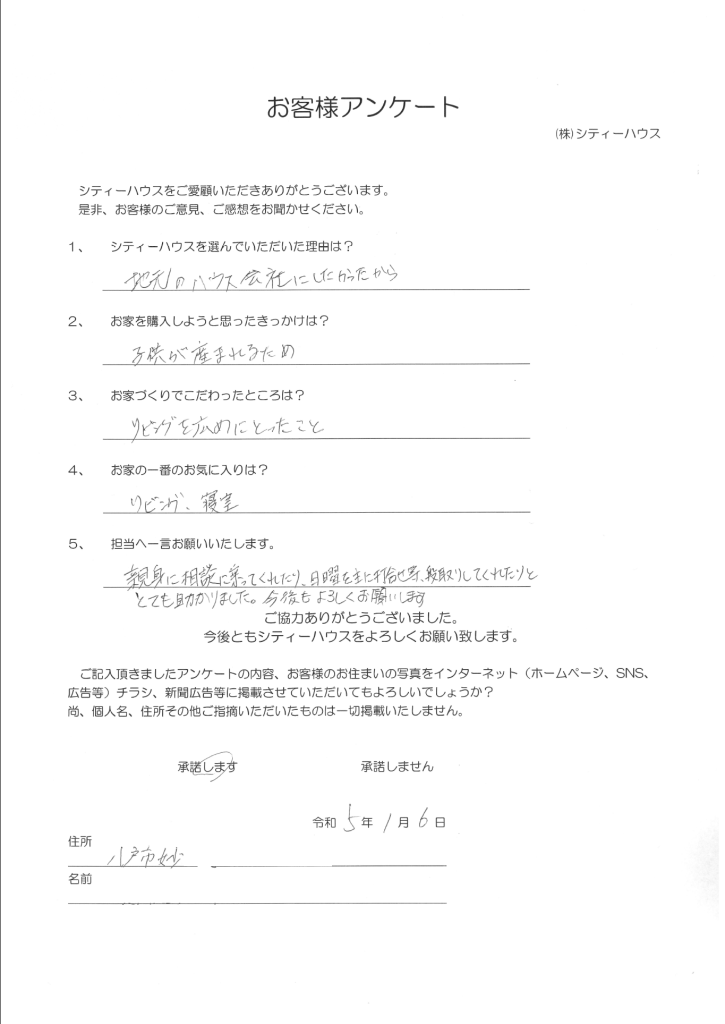 お客様アンケート
(株)シティーハウス
シティーハウスをご愛顧いただきありがとうございます。
是非、お客様のご意見、ご感想をお聞かせください。
1、 シティーハウスを選んでいただいた理由は？
地元のハウス会社にしたかったから
2、 お家を購入しようと思ったきっかけは？
子供が産まれるため
3、 お家づくりでこだわったところは？
リビングを広めにとったこと
4、 お家の一番のお気に入りは？
リビング、寝室
5、 担当へ一言お願いいたします。
親身に相談に乗ってくれたり、日曜を主に打合せ等、段取りしてくれたりと
とても助かりました。今後もよろしくお願いします
ご協力ありがとうございました。
今後ともシティーハウスをよろしくお願い致します。
ご記入頂きましたアンケートの内容、お客様のお住まいの写真をインターネット（ホームページ、SNS、
広告等）チラシ、新聞広告等に掲載させていただいてもよろしいでしょうか？
尚、個人名、住所その他ご指摘いただいたものは一切掲載いたしません。
承諾します 承諾しません
令和 5 年 1 月 6 日
住所
八戸市妙
名前